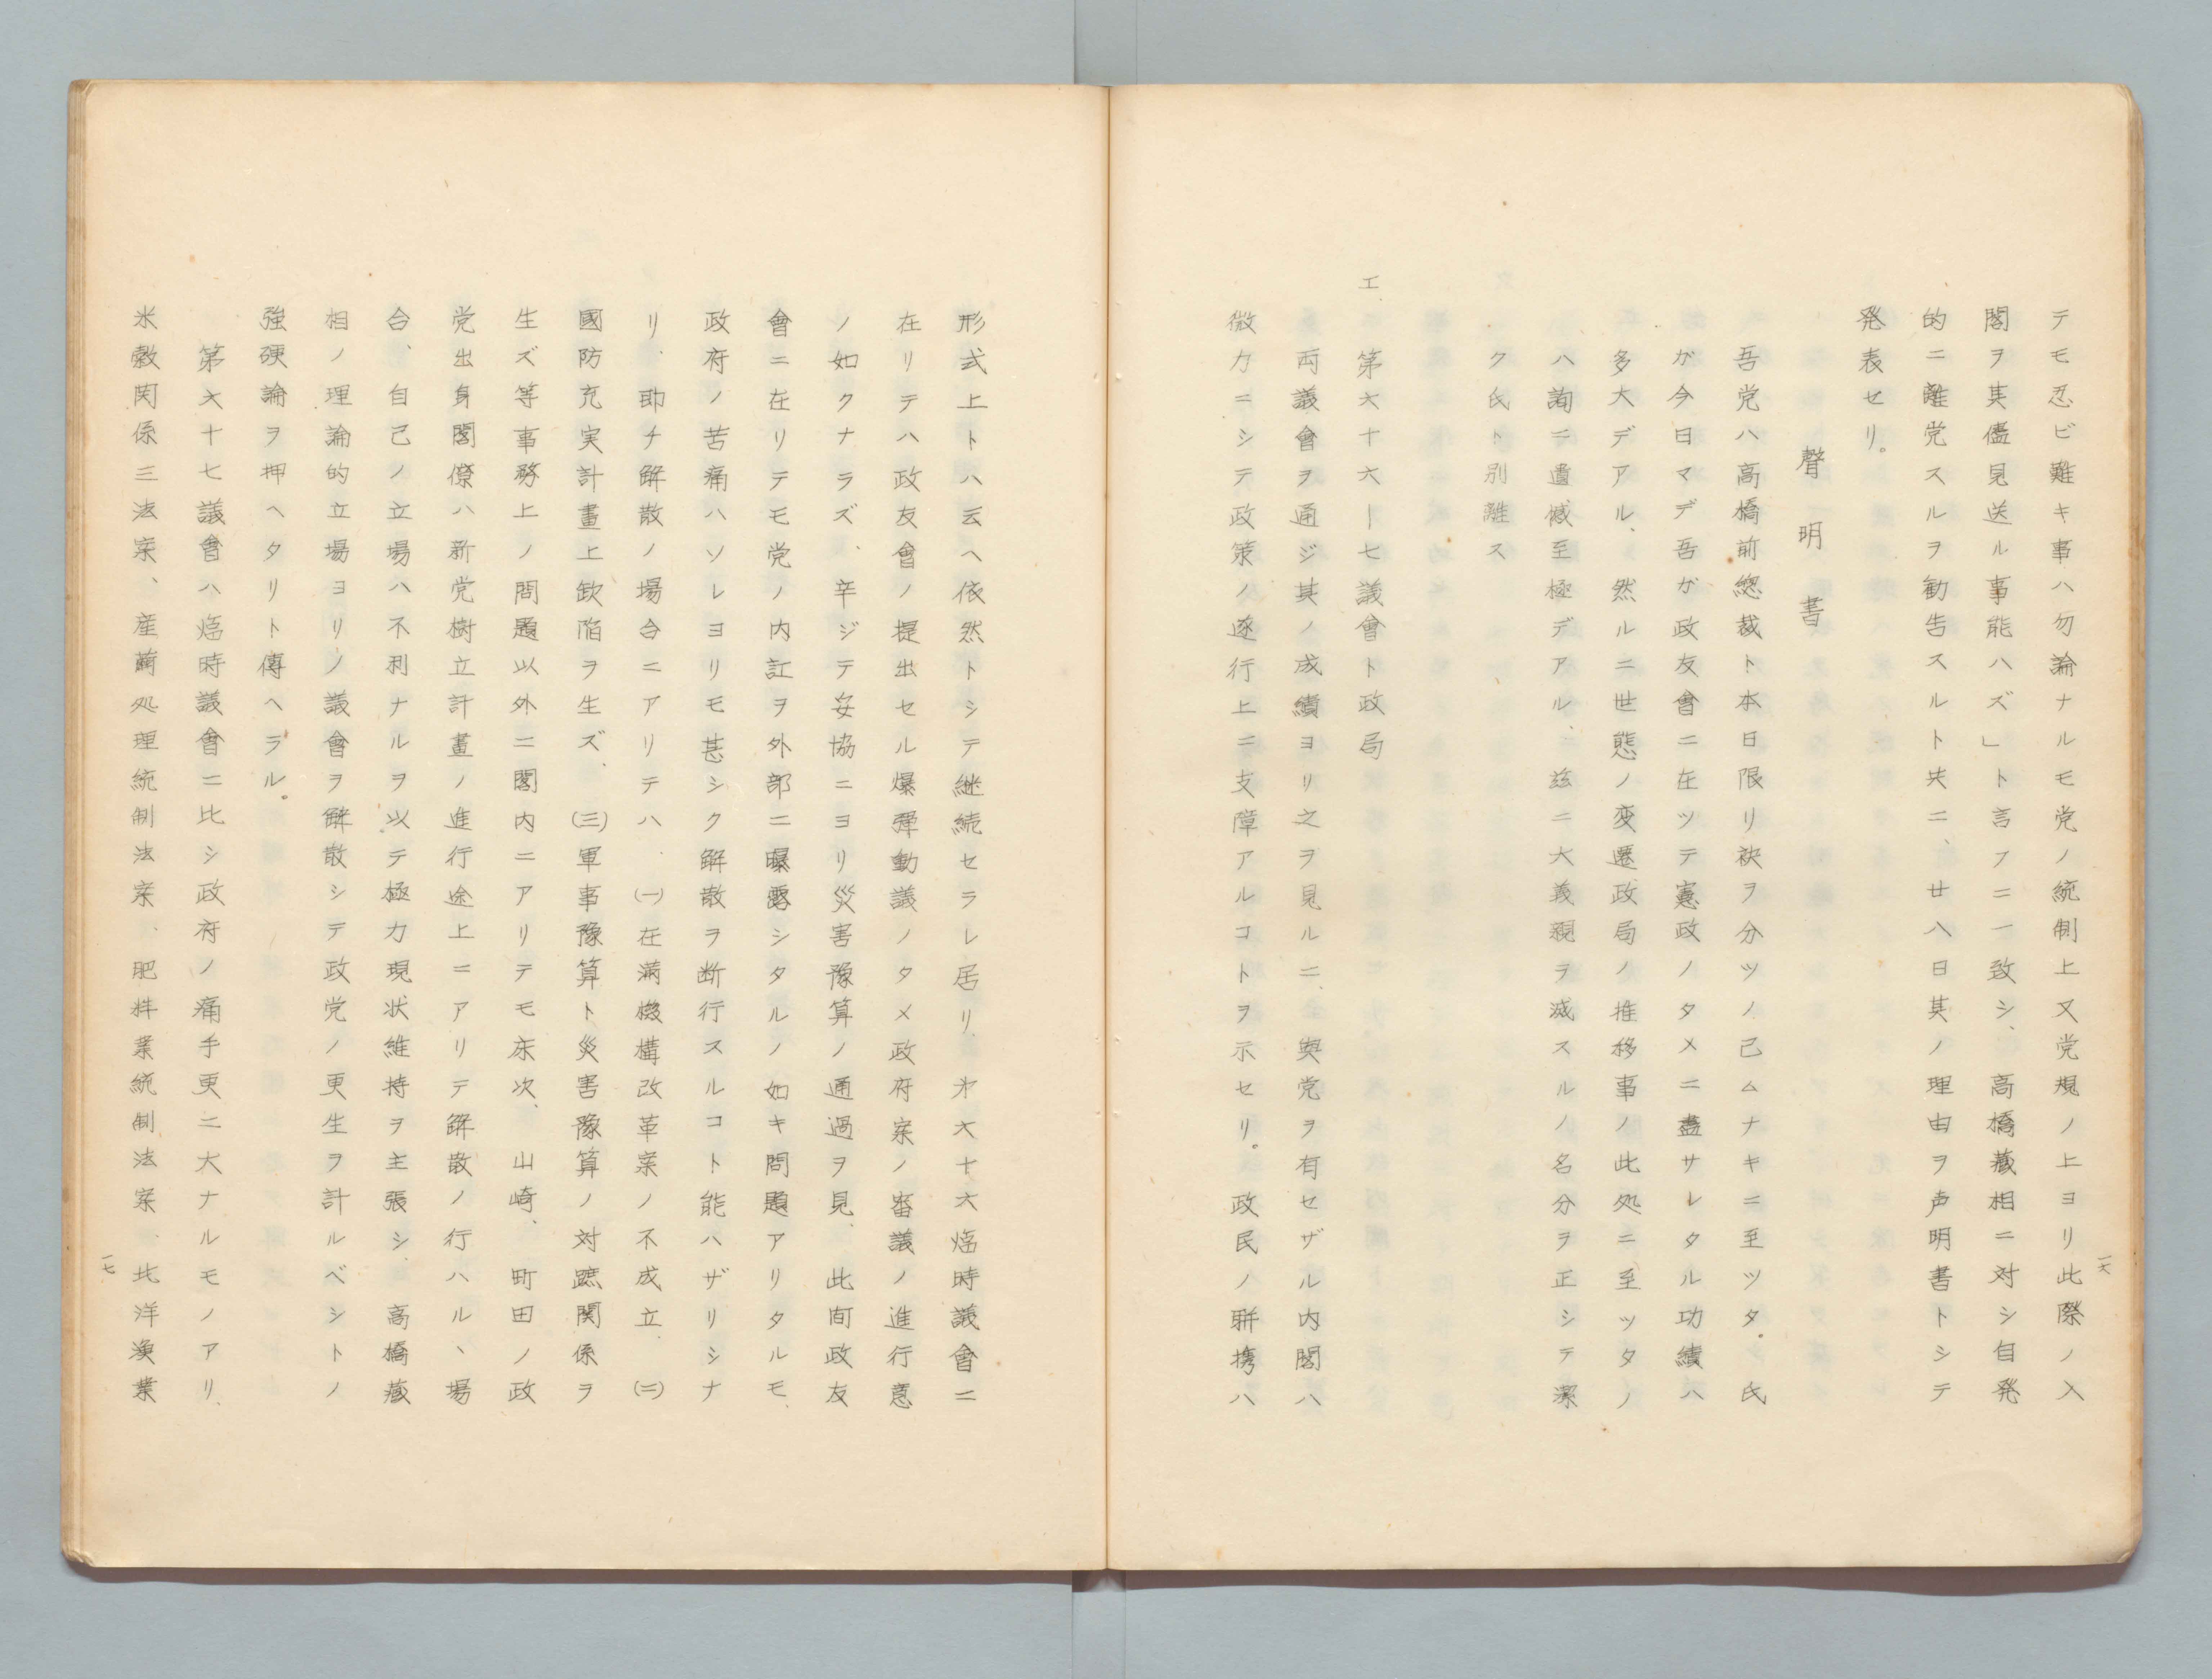 テモ忍ビ難キ事ハ勿論ナルモ党ノ統制上又党規ノ上ヨリ此際ノ入
閣ヲ其儘見送ル事能ハズ」ト言フニ一致シ、高橋蔵相ニ対シ自発
的ニ離党スルヲ勧告スルト共ニ、廿八日其ノ理由ヲ声明書トシテ
発表セリ。
聲明書
吾党ハ高橋前總裁ト本日限リ袂ヲ分ツノ己ムナキニ至ツタ。氏
ガ今日マデ吾ガ政友會ニ在ツテ憲政ノタメニ盡サレタル功績ハ
多大デアル、然ルニ世態ノ変遷政局ノ推移事ノ此処ニ至ツタノ
ハ詢ニ遺憾至極デアル、茲ニ大義親ヲ滅スルノ名分ヲ正シテ潔
ク氏ト別離ス
エ、第六十六ー七議會ト政局
両議會ヲ通ジ其ノ成績ヨリ之ヲ見ルニ、與党ヲ有セザル内閣ハ
微力ニシテ政策ノ逐行上ニ支障アルコトヲ示セリ。政民ノ聯携ハ
一六
形式上トハ云ヘ依然トシテ継続セラレ居リ、第六十六臨時議會ニ
在リテハ政友會ノ提出セル爆彈動議ノタメ政府案ノ審議ノ進行意
ノ如クナラズ、辛ジテ妥協ニヨリ災害豫算ノ通過ヲ見、此間政友
會ニ在リテモ党ノ内訌ヲ外部ニ曝露シタルノ如キ問題アリタルモ、
政府ノ苦痛ハソレヨリモ甚シク解散ヲ断行スルコト能ハザリシナ
リ、即チ解散ノ場合ニアリテハ、(一)在満機構改革案ノ不成立、(二)
國防充実計畫上欽陷ヲ生ズ、(三)軍事豫算ト災害豫算ノ対蹠関係ヲ
生ズ等事務上ノ問題以外ニ閣内ニアリテモ床次、山崎、町田ノ政
党出身閣僚ハ新党樹立計畫ノ進行途上ニアリテ解散ノ行ハルヽ場
合、自己ノ立場ハ不利ナルヲ以テ極力現状維持ヲ主張シ、高橋蔵
相ノ理論的立場ヨリノ議會ヲ解散シテ政党ノ更生ヲ計ルベシトノ
強硬論ヲ押ヘタリト傳ヘラル。
第六十七議會ハ臨時議會ニ比シ政府ノ痛手更ニ大ナルモノアリ、
米穀関係三法案、産繭処理統制法案、肥料業統制法案、北洋漁業
一七